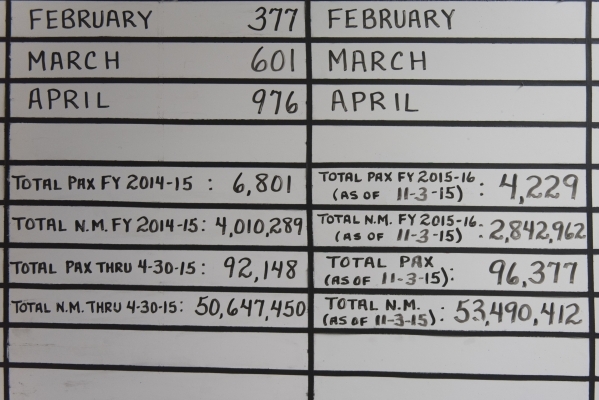 FEBRUARY 377
MARCH 601
APRIL 976
TOTAL PAX FY 2014-15 : 6,801
TOTAL N.M. FY 2014-15: 4,010,289
TOTAL PAX THRU 4-30-15: 92,148
TOTAL N.M. THRU 4-30-15: 50,647,450
FEBRUARY
MARCH
APRIL
TOTAL PAX FY 2015-16
(AS OF 11-3-15) : 4,229
TOTAL N.M. FY 2015-16
(AS OF 11-3-15) : 2,842,962
TOTAL PAX
(AS OF 11-3-15): 96,377
TOTAL N.M.
(AS OF 11-3-15): 53,490,412